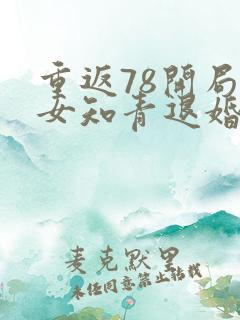 重返78开局
女知青退婚
麦克默里
未经同意禁止转载